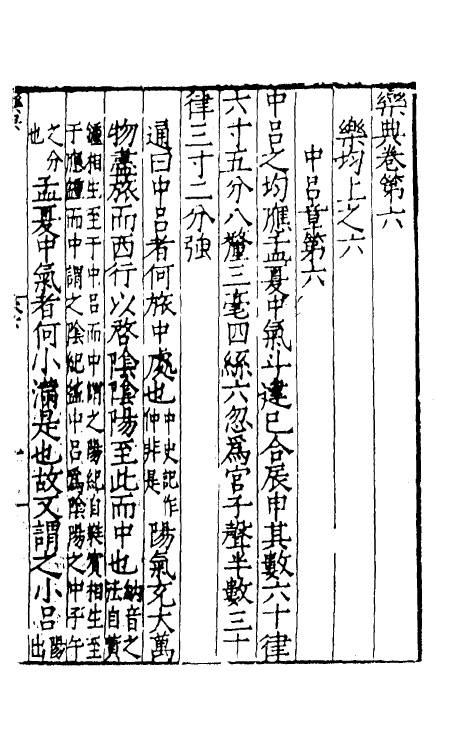 樂典卷第六
樂均上之六
中呂章第六
中呂之均應孟夏中氣斗建巳合辰申其數六十律
六寸五分八釐三毫四絲六忽爲宮子聲半數三十
律三寸二分強
通曰中呂者何旅中處也中史記作仲非是陽氣充大萬
物盡旅而西行以啓陰陰陽至此而中也納音之法自黃
鍾相生至于中呂而中謂之陽紀自蕤賓相生至
于應鍾而中謂之陰紀蓋中呂爲陰陽之中子午
之分也孟夏中氣者何小滿是也故又謂之小呂陽出